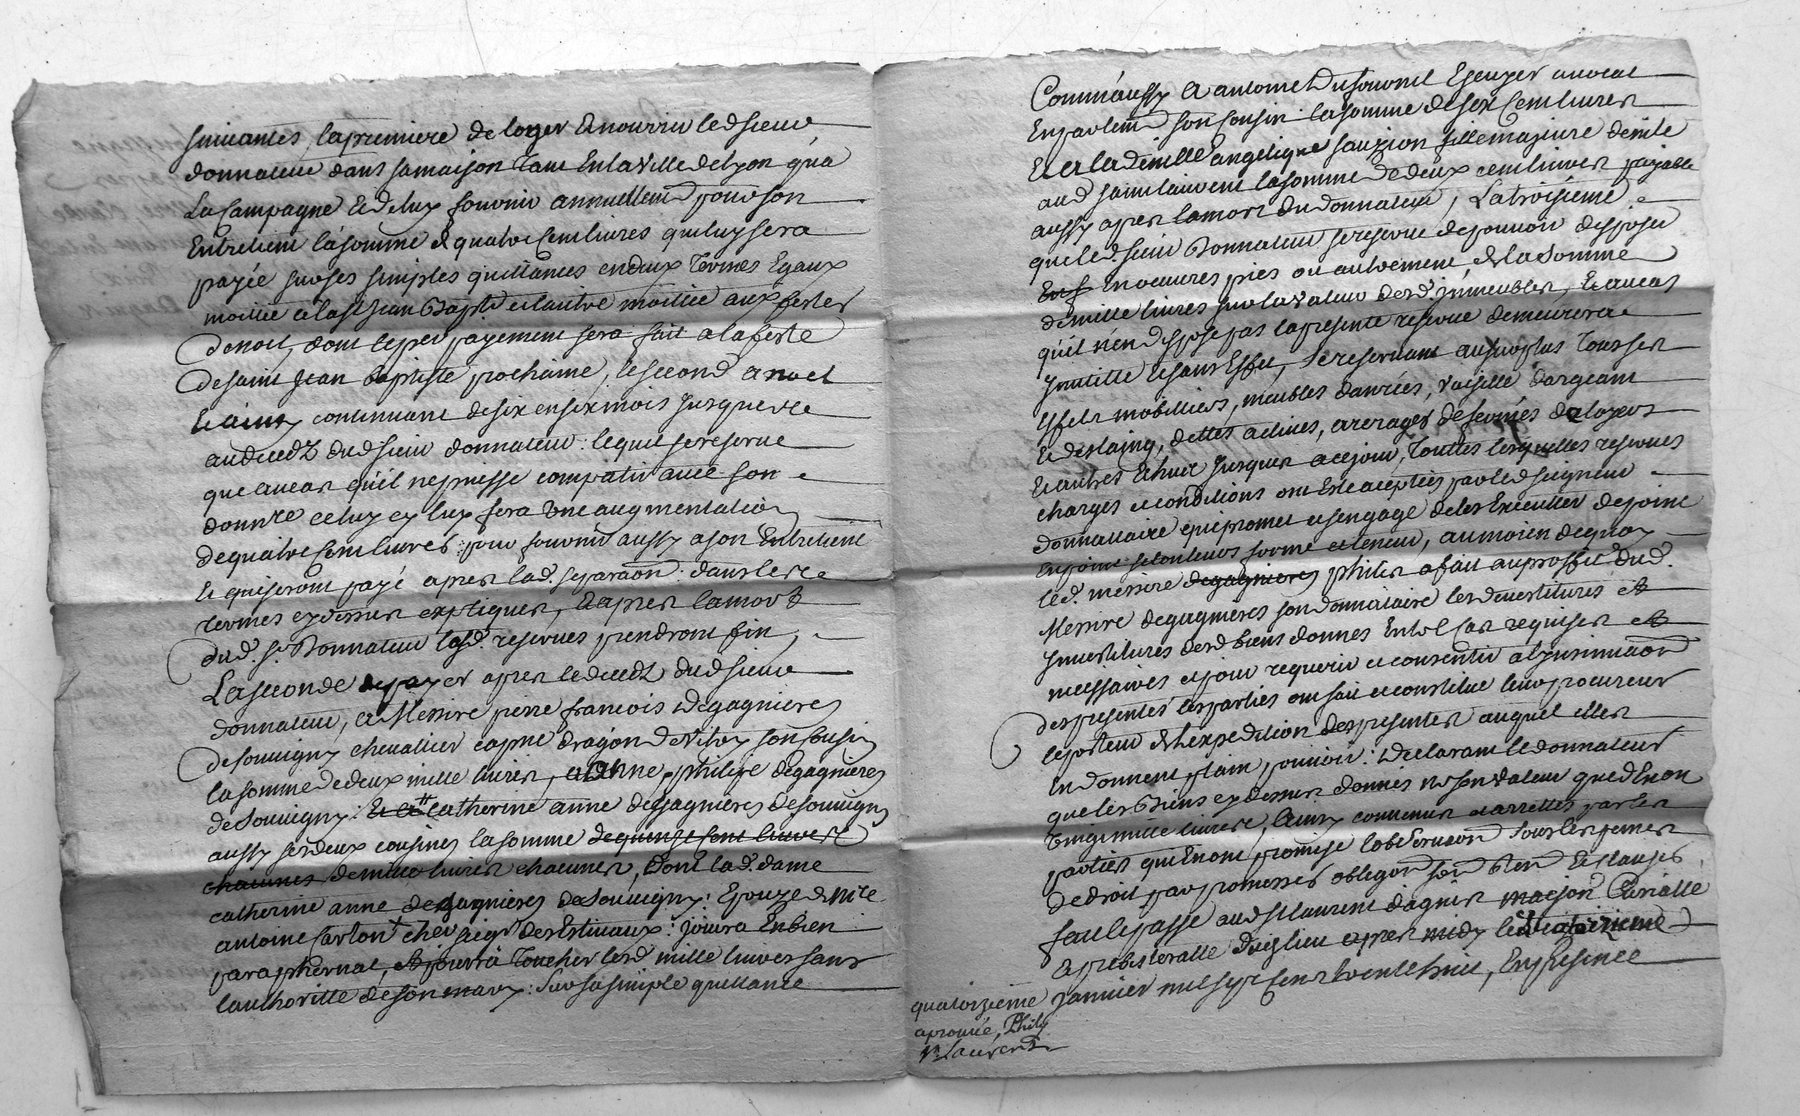 suivantes, la premiere de loger & nourrir led sieur
donnateur dans sa maison tant en la ville de Lyon qu'a
La Campagne & de luy fournir annuellemt pour son
Entretient la somme de quatre Cent livres qui luy sera
payée sur ses simples quittances en deux termes Egaux
moitié a la st Jean Baptte et lautre moitié aux festes
de noel, dont le per payement sera fait a la feste
de saint Jean baptiste prochaine, le second a noel
& ainsy continuant de six en six mois Jusques
au decedz dud sieur donnateur. lequel se reserve
que au cas qu'il ne puisse compatir avec son
donnre celuy cy luy fera une augmentation
de quatre Cent livres pour fournir aussy a son Entretient
& qui seront payé apres lad. separaon dans les
termes cy dessus expliques, & apres la mort
dud. sr Donnateur lesd. reserves prendront fin,
La seconde de payer apres le decedz dud sieur
donnateur, a Messire pierre francois Degagnieres
de souvigny chevallier capne dragon de Vitry son Cousin
la somme de deux mille livres, a Anne philipe degagnieres
de souvigny: Et a catherine anne degagnieres de souvigny
aussy ses deux cousines la somme de quinze cent livres
chacunes de mille livres chacunes, Dont lad. dame
catherine anne degagnieres de Souvigny: Epouze de Mre
antoine Carton chevr seigr des Estivaux: Jouira En bien
paraphernal, et pourra toucher lesd mille livres sans
lauthoritté de son mary: Sur sa simple quittance
Comm'aussy a antoine Dufournel Escuyer avocat
En parlemt son Cousin la somme de six Cent livres
Et a la demlle angelique fille majeure demte
aud saint laurent la somme de deux cent livres payable
aussy apres la mort du donnateur, La troisieme
que led. sieur Donnateur se reserve de pouvoir disposer
En œuvres pies ou autrement de la somme
de mille livres sur la valeur desd. immeubles, & au cas
qu'il n'en dispose pas la presente reserve demeurera
Jnutille et sans Effet, se reservant au surplus tous ses
Effets mobilliers, meubles danrées, vaiselle d'argeant
& destaing, dettes actives, arerages de fermes de loyers
& autres Echue Jusques a ce jour, touttes lesquelles reserves
charges et conditions ont Esté aceptées par led seigneur
donnataire qui promet et s'engage de les Executter de point
En point selon leurs forme et teneur, au moien de quoy
led. messire degagnieres philis a fait au proffit dud.
Messire degagnieres son donnataire les devestitures et
Jnvestitures desd biens donnes En tel Cas requises et
necessaires et pour requerir et consentir a l'Jnsinuaon
des presentes les parties ont fait et constitue leur procureur
le porteur de lexpedition des presentes auquel elles
En donnent plain pouvoir: Declarant le donnateur
que les Biens cy dessus donnes ne sont valeur que d'Environ
vingt mille livres, Ainsy convenu et arrettes par les
parties qui En ont promise lobservaon sous les peines
de droit, par promesses obligaons & clauses
fait & passé aud St laurent d'agnis maison Curialle
& presbiteralle dudit lieu apres midy le quatorzieme
Janvier mil sept Cens trente huit, En presence
quatorzieme
aprouvé, Phily
st laurent